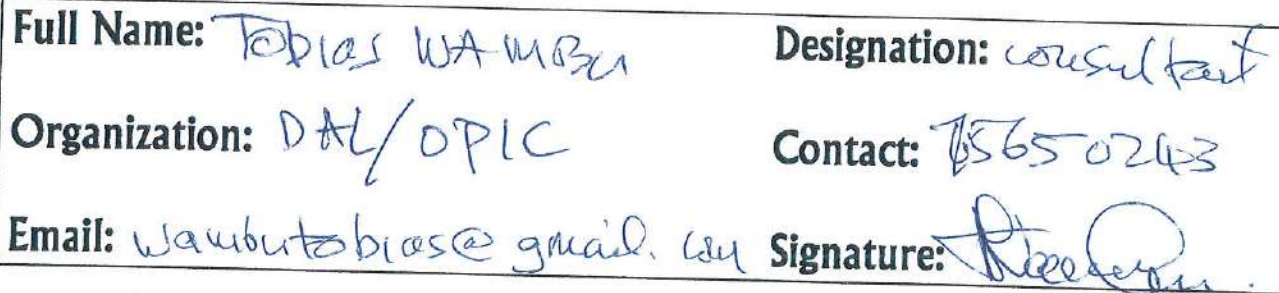 Full Name: Tobias WAMBU Designation: consultant
Organization: DAL/OPIC Contact: 75650243
Email: wambutobias@gmail.com Signature: